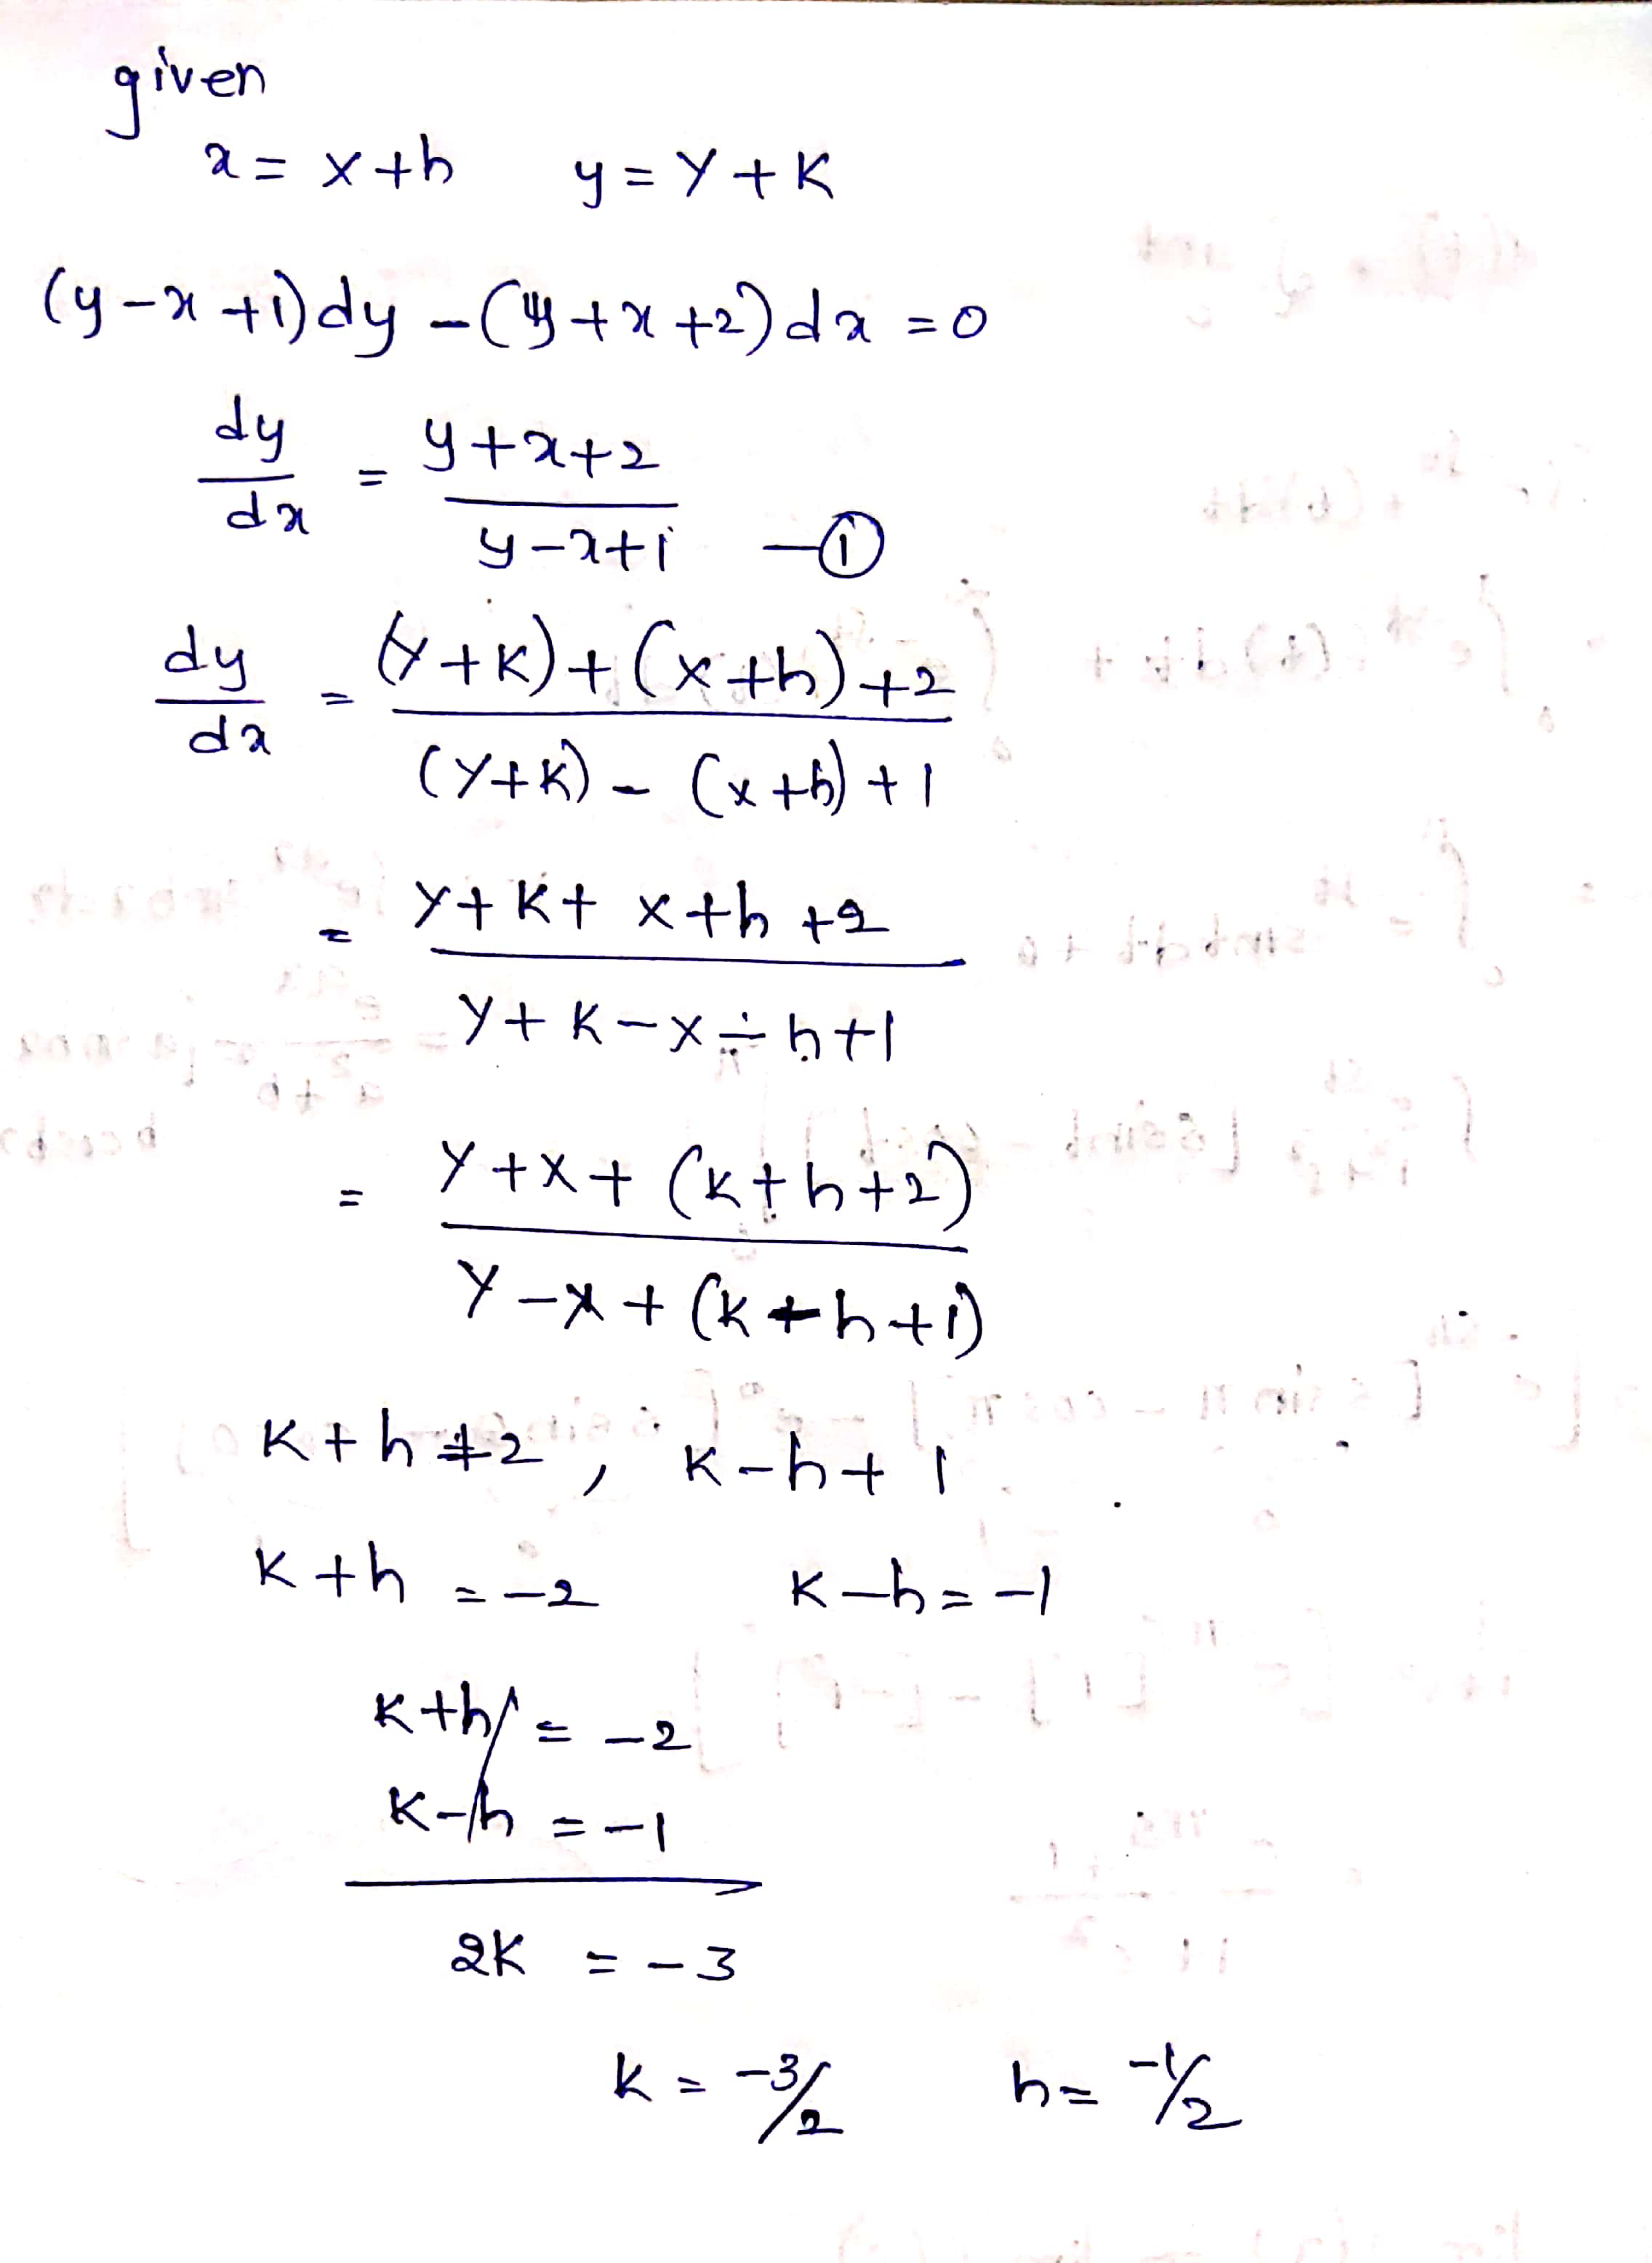 given
x = X + h y = Y + K
(y - x + 1) dy - (y + x + 2) dx = 0
dy/dx = (y + x + 2)/(y - x + 1) - ①
dy/dx = ((Y + K) + (X + h) + 2)/((Y + K) - (X + h) + 1)
= (Y + K + X + h + 2)/(Y + K - X - h + 1)
= (Y + X + (K + h + 2))/(Y - X + (K + h + 1))
K + h + 2 , K - h + 1
K + h = -2 K - h = -1
K + h = -2
K - h = -1
2K = -3
K = -3/2 h = -1/2